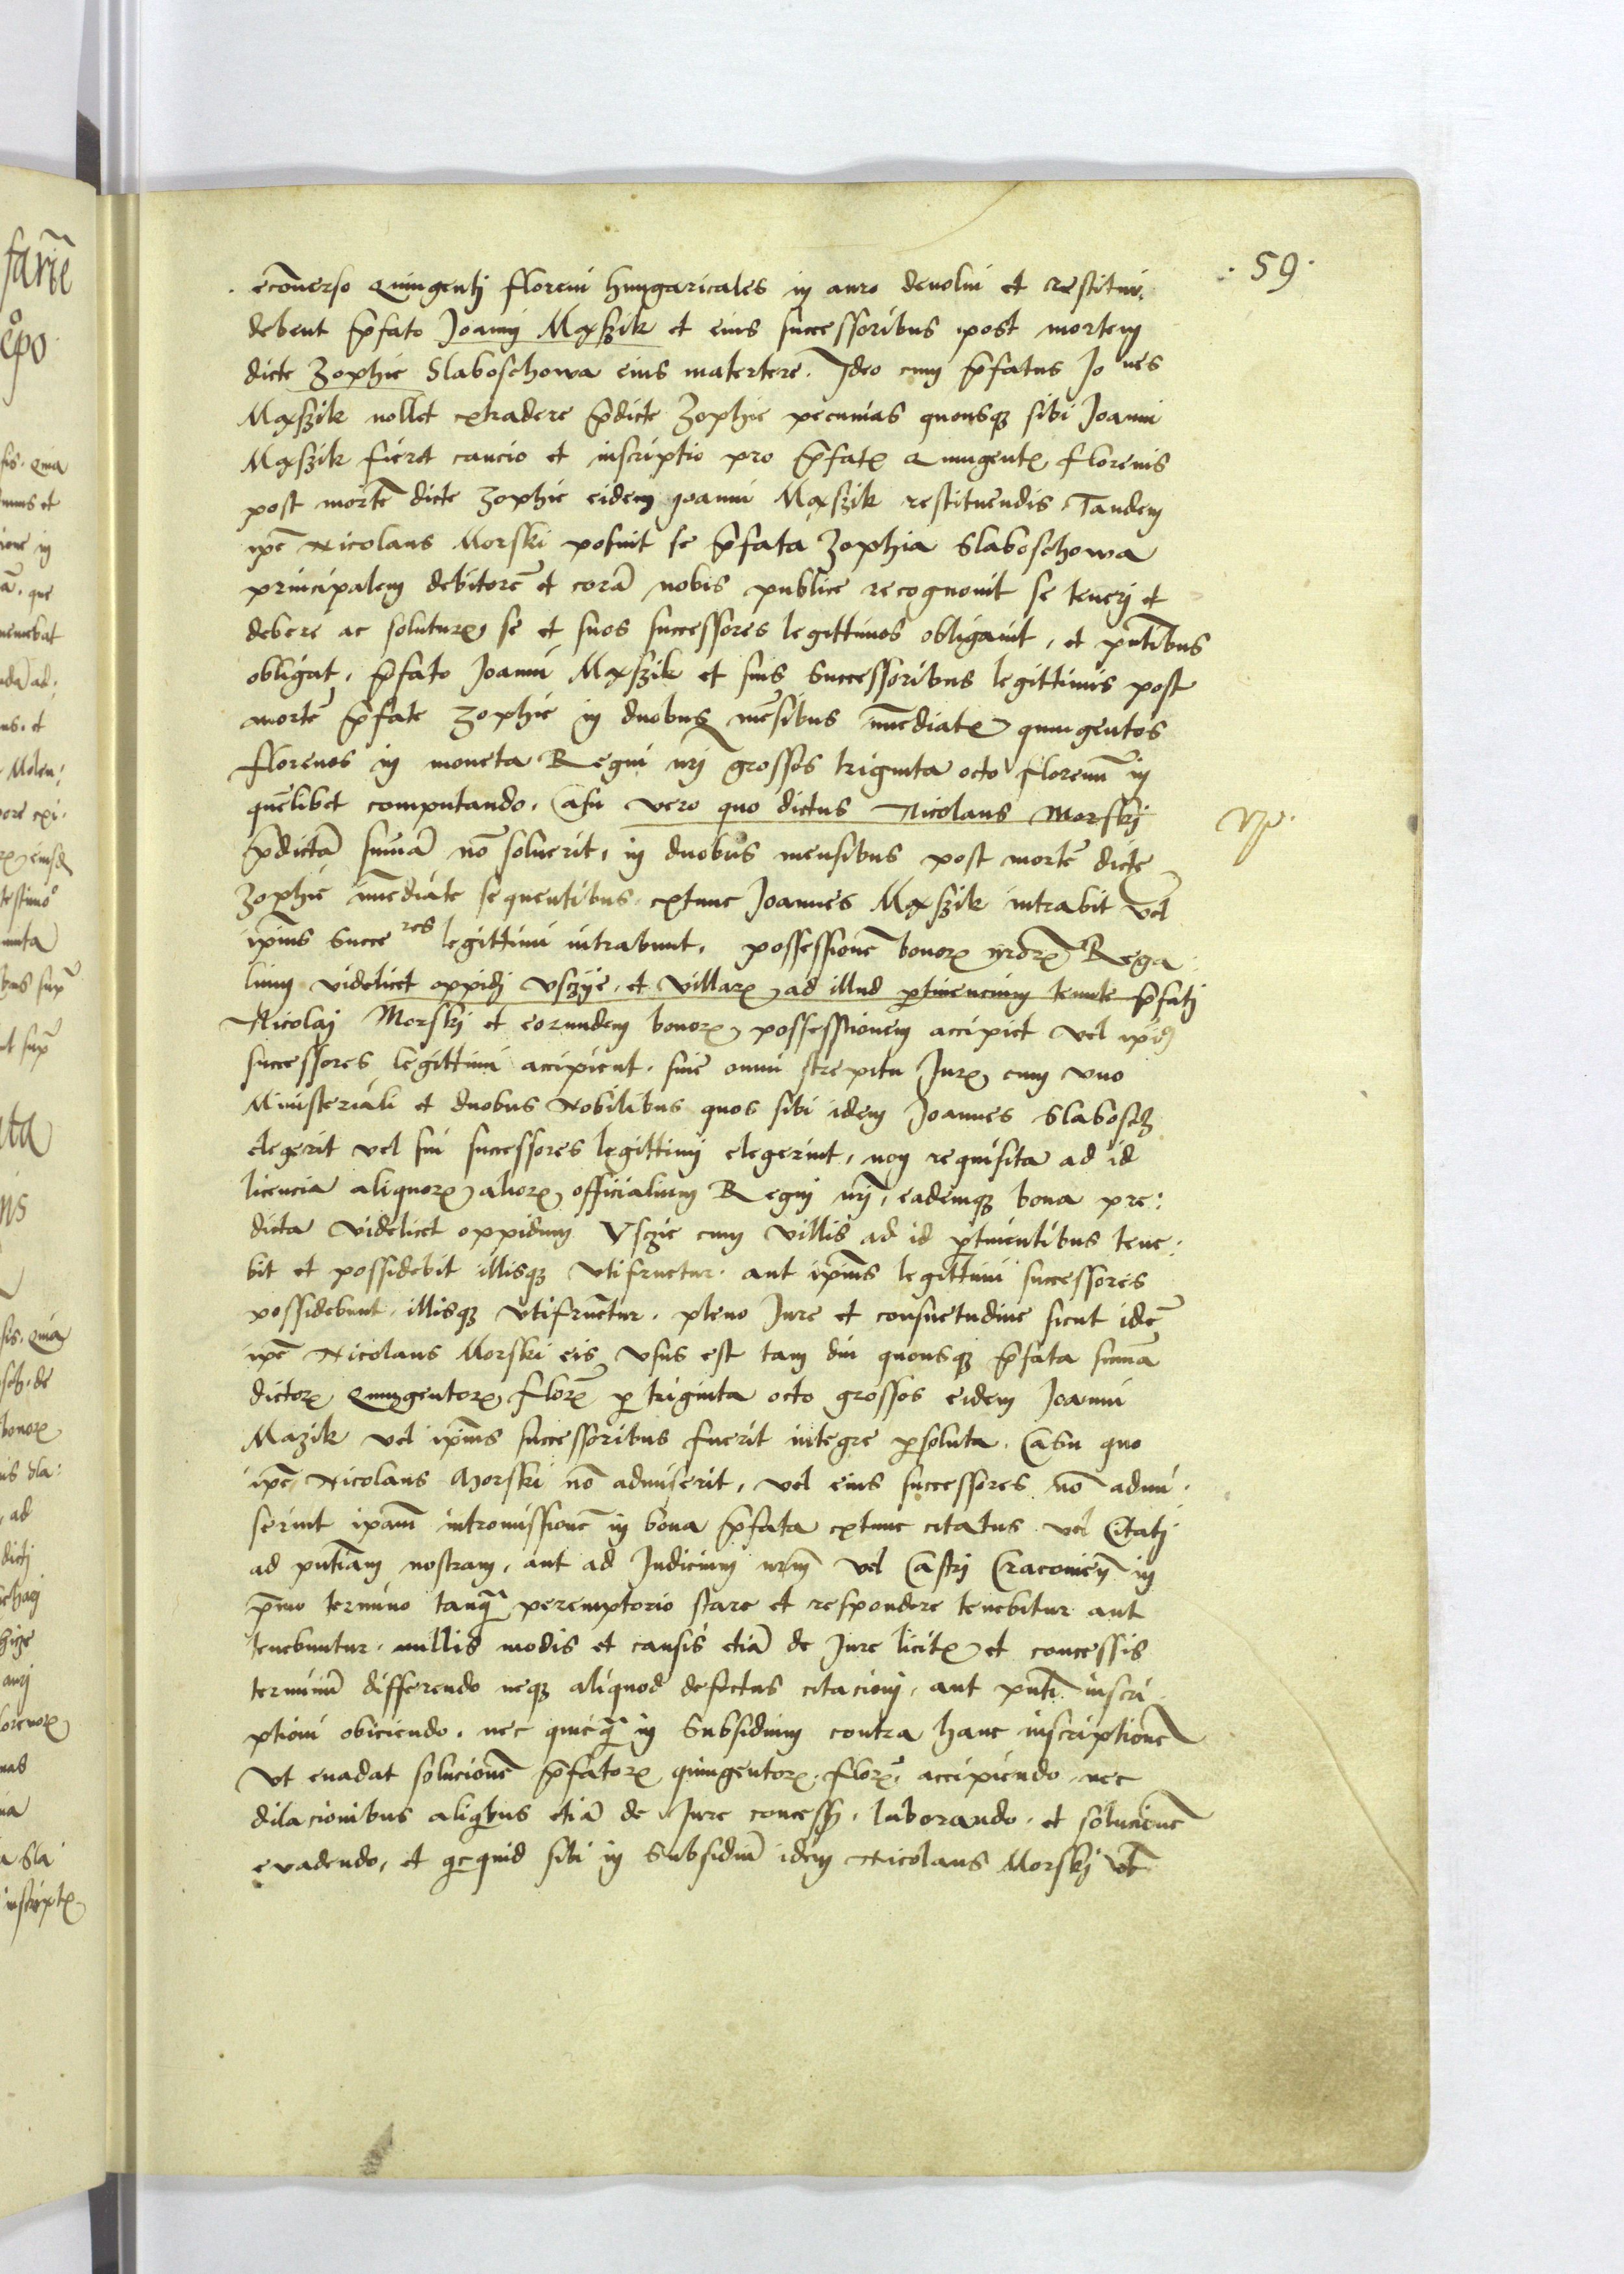 · 59 ·
ecōuerso Quingentj floreni hungaricales in auro deuolui et restitui
debent p̄fato Joannj Mxszik et eius successoribus post mortem
dicte Zophie Slaboschowa eius matertere. Ideo cum p̄fatus Jo nes
Mxszik nollet extradere p̄dicte Zophie pecunias quousqꝫ sibi Joanni
Mxszik fieret caucio et inscriptio pro p̄fatꝭ Quingentꝭ florenis
post mortē dicte Zophie eidem Joanni Mxszik restituendis. Tandem
ip̄e Nicolaus Morski posuit se p̄fata Zophia Slaboschowa
principalem debitorē et corā nobis publice recognouit se tenerj et
debere ac soluturꝝ se et suos successores legittimos obligauit, et pn̄tibus
obligat, p̄fato Joanni Mxszik et suis Successoribus legittimis post
mortē p̄fate Zophie in duobus mēsibus īmediatꝭ quingentos
florenos in moneta Regni nr̄j grossos triginta octo florenū in
quēlibet computando. Casu vero quo dictus Nicolaus Morskj
p̄dictā sum̄ā nō soluerit, in duobus mensibus post mortē dicte
Zophie īmediate sequentibus. extunc Joannes Mxszik intrabit vel
ip̄ius Succe res legittimi intrabunt, possessionē bonoꝝ nr̄oꝝ Rega:
lium videlicet oppidj Vsczye. et villaꝝ ad illud ꝑtinencium tenute p̄fatj
Nicolaj Morskj et eorundem bonoꝝ possessionem accipiet vel
successores legittimi accipient. sine omni strepitu Jurꝭ, cum vno
Ministeriali et duobus Nobilibus quos sibi idem Joannes Slabosch
elegerit vel sui successores legittimj elegerint, non requisita ad id
licencia aliquoꝝ alioꝝ officialium Regnj nr̄j, eademqꝫ bona pre:
dicta videlicet oppidum Vsczie cum villis ad id ꝑtinentibus tene:
bit et possidebit illisqꝫ vtifruetur. aut ip̄ius legittimi successores
possidebunt, illisqꝫ vtifruētur. pleno Jure et consuetudine sicut idē
ip̄e Nicolaus Morski eis vsus est tam diu quousqꝫ p̄fata sum̄a
dictoꝝ Quingentoꝝ floꝝ ꝑ triginta octo grossos eidem Joanni
Mazik vel ip̄ius successoribus fuerit integre ꝑsoluta. Casu quo
ip̄e Nicolaus Morski nō admiserit, vel eius successores nō admi:
serint ip̄am intromissionē in bona p̄fata extunc citatus vel Citatj
ad pn̄tiam nostram, aut ad Judicium nrm̄ vel Castrj Cracouien̄ in
p̄mo termino tanqͣ peremptorio stare et respondere tenebitur aut
tenebuntur. nullis modis et causis etiā de Jure licitꝭ et concessis
terminū differendo neqꝫ aliquod defectus citacionj, aut pn̄tj inscri
ptioni obiciendo. nec quicqͣ in Subsidium contra hanc inscriptionē
Vt euadat solucionē p̄fatoꝝ quingentoꝝ floꝝ, accipiendo nec
dilacionibus aliqͥbus etiā de Jure concess̄. laborando. et solucionē
euadendo, et qͥcquid sibi in Subsidiū idem Nicolaus Morskj vt